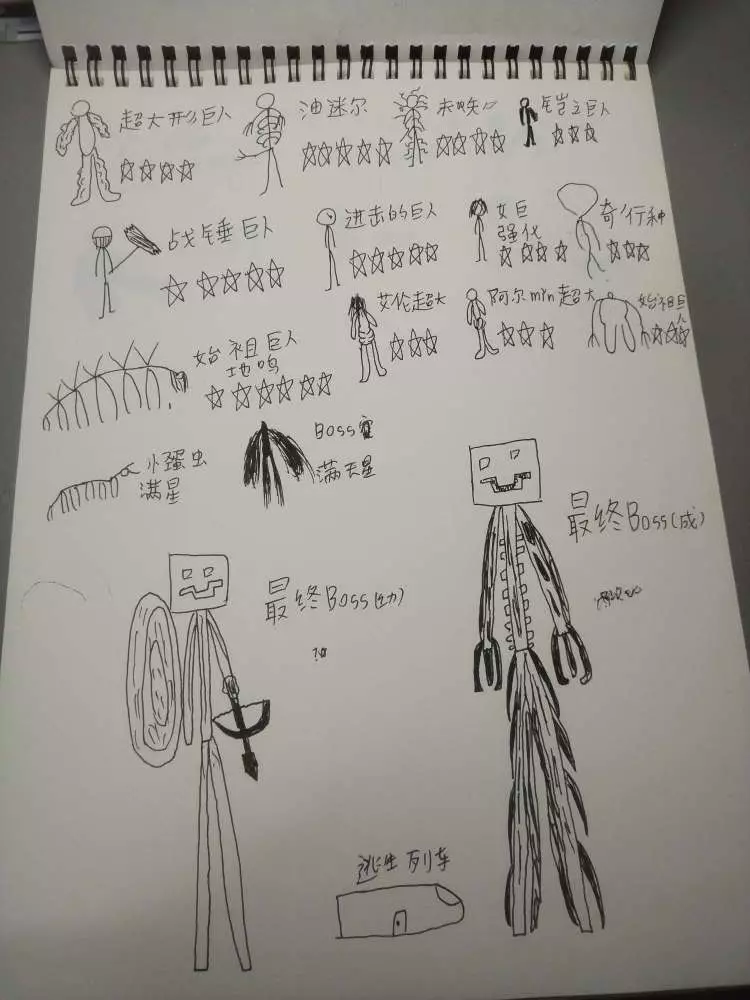 超大形巨人
☆☆☆☆
油迷尔
☆☆☆☆☆
☆☆☆☆
铠之巨人
☆☆☆
战锤巨人
☆☆☆☆☆
进击的巨人
☆☆☆☆☆
女巨
强化
☆☆☆☆
奇行种
☆☆☆
艾伦超大
☆☆☆
阿尔min超大
☆☆☆
始祖巨人
☆☆☆
始祖巨人
地鸣
☆☆☆☆☆☆
小蛋虫
满星
Boss
满天星
最终Boss(成)
最终Boss(幼)
逃生列车